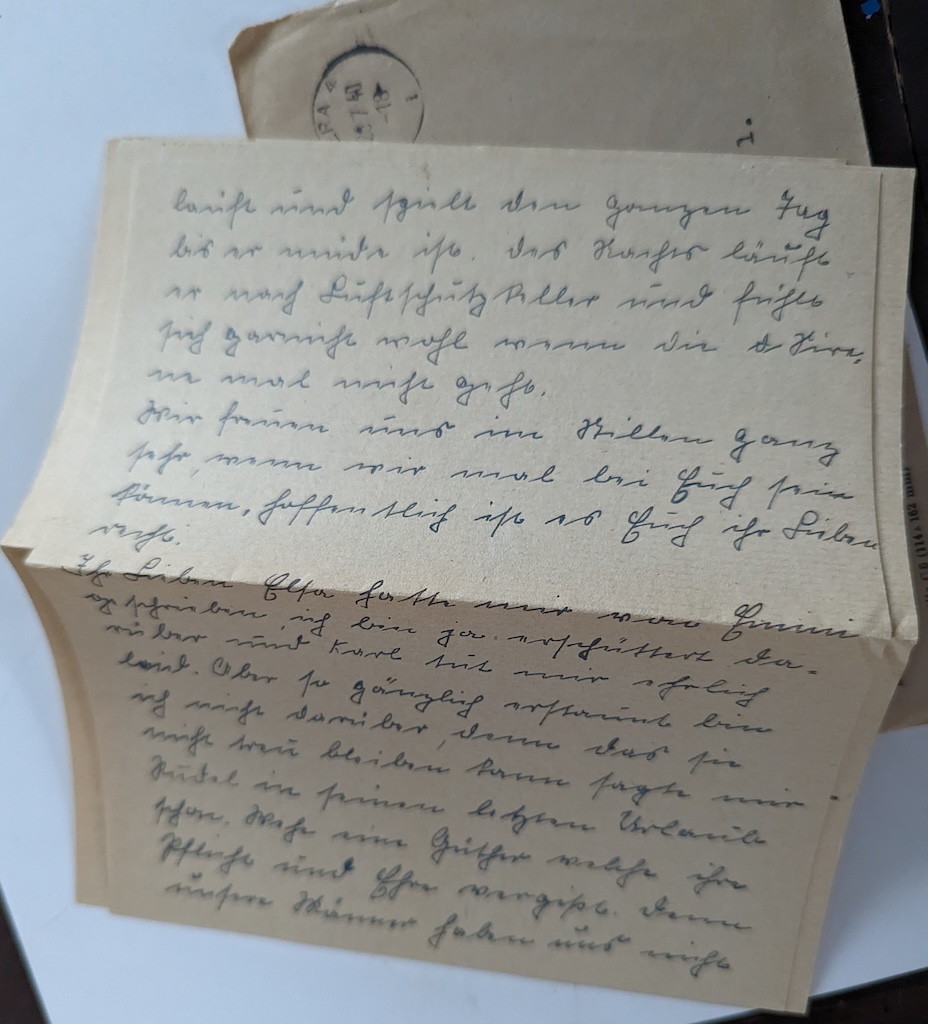 RA
1.
läuft und spielt den ganzen Tag
bis er müde ist. des Nachts läuft
er nach Luftschutzkeller und fühlt
sich garnicht wohl wenn die Sire-
ne mal nicht geht.
Wir freuen uns im Stillen ganz
sehr, wenn wir mal bei Euch sein
können, hoffentlich ist es Euch ihr Lieben
recht.
Ihr Lieben Elsa hatte mir von Emmi
geschrieben, ich bin ja erschüttert da-
rüber und Karl tut mir ehrlich
leid. Aber so gänzlich erstaunt bin
ich nicht darüber, denn das sie
nicht treu bleiben kann sagte mir
Rudel in seinen letzten Urlaub
schon. Wehe eine welche ihre
Pflicht und Ehre vergißt. Denn
unsere Männer haben uns nicht